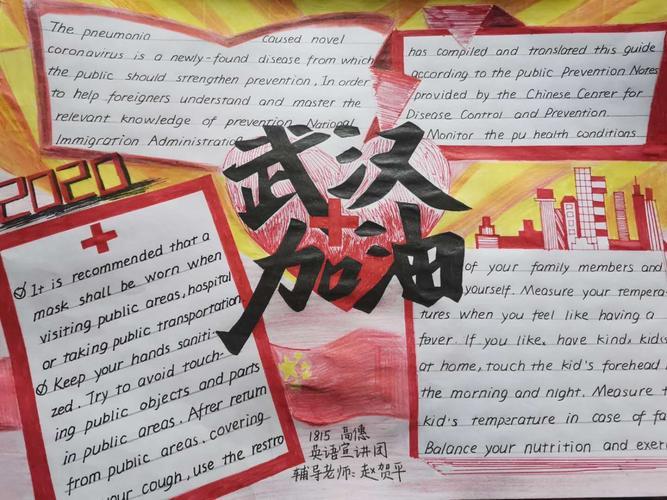 The pneumonia caused novel
coronavirus is a newly-found disease from which
the public should strengthen prevention. In order
to help foreigners understand and master the
relevant knowledge of prevention, National
Immigration Administration
has compiled and translated this guide
according to the public Prevention Notes
provided by the Chinese Center for
Disease Control and Prevention.
Monitor the pu health conditions
武汉
加油
2020
It is recommended that a
mask shall be worn when
visiting public areas, hospital
or taking public transportation.
Keep your hands saniti-
zed. Try to avoid touch-
ing public objects and parts
in public areas. After return
from public areas, covering
your cough, use the restro
of your family members and
yourself. Measure your tempera-
tures when you feel like having a
fever. If you like, have kind, kids
at home, touch the kid's forehead
the morning and night. Measure
kid's temperature in case of fe
Balance your nutrition and exer
1815 高德
英语宣讲团
辅导老师: 赵贺平